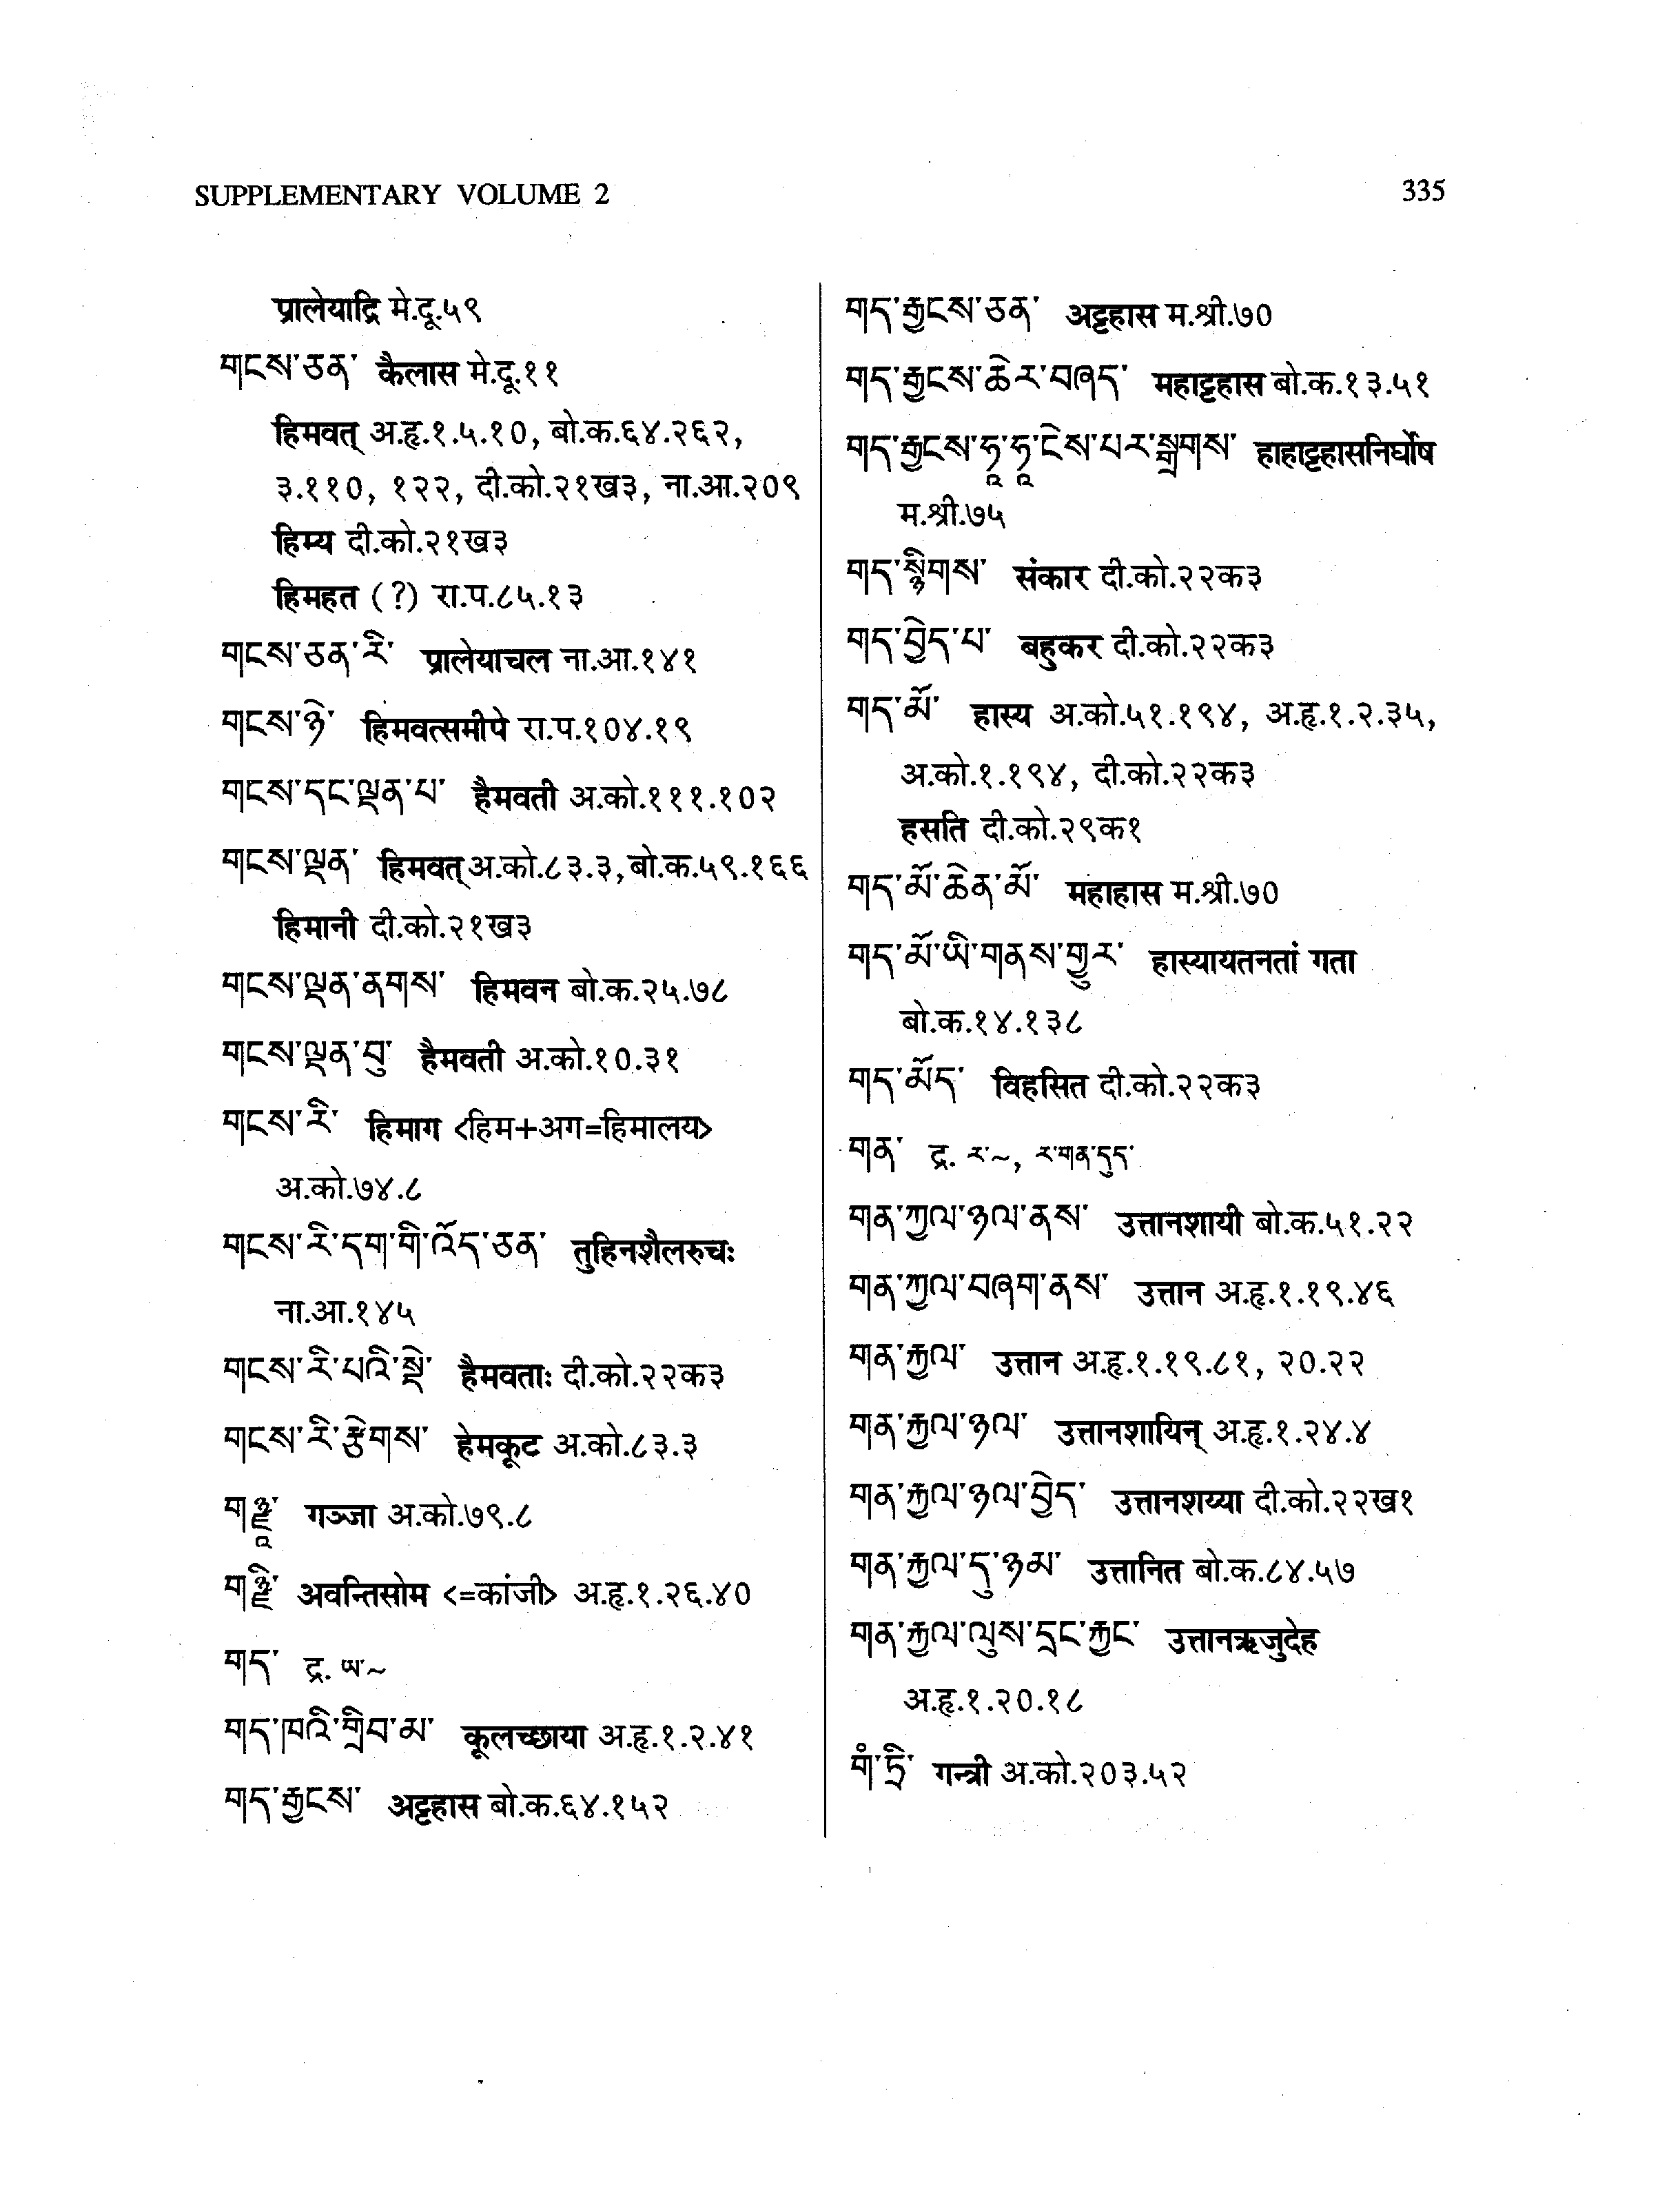 SUPPLEMENTARY VOLUME 2
335
प्रालेयाद्रि मे.दू.५९
གངས་ཅན་ कैलास मे.दू.११
हिमवत् अ.हृ.१.५.१०, बो.क.६४.२६२,
३.११०, १२२, दी.को.२१ख३, ना.आ.२०९
हिम्य दी.को.२१ख३
हिमहत (?) रा.प.८५.१३
གངས་ཅན་རི་ प्रालेयाचल ना.आ.१४१
གངས་ཉེ་ हिमवत्समीपे रा.प.१०४.१९
གངས་དང་ལྡན་པ་ हैमवती अ.को.१११.१०२
གངས་ལྡན་ हिमवत् अ.को.८३.३, बो.क.५९.१६६
हिमानी दी.को.२१ख३
གངས་ལྡན་ནགས་ हिमवन बो.क.२५.७८
གངས་ལྡན་བུ་ हैमवती अ.को.१०.३१
གངས་རི་ हिमाग <हिम+अग=हिमालय>
अ.को.७४.८
གངས་རི་དག་གི་འོད་ཅན་ तुहिनशैलरुचः
ना.आ.१४५
གངས་རི་པའི་སྡེ་ हैमवताः दी.को.२२क३
གངས་རི་རྩེགས་ हेमकूट अ.को.८३.३
གཉྫཱ་ गञ्जा अ.को.७९.८
གཉྫི་ अवन्तिसोम <=कांजी> अ.हृ.१.२६.४०
གད་ द्र. ཨ་~
གད་ཁའི་གྲིབ་མ་ कूलच्छाया अ.हृ.१.२.४१
གད་རྒྱངས་ अट्टहास बो.क.६४.१५२
གད་རྒྱངས་ཅན་ अट्टहास म.श्री.७०
གད་རྒྱངས་ཆེར་བཞད་ महाट्टहास बो.क.१३.५१
གད་རྒྱངས་ཧཱ་ཧཱ་ངེས་པར་སྒྲགས་ हाहाट्टहासनिर्घोष
म.श्री.७५
གད་སྙིགས་ संकार दी.को.२२क३
གད་བྱེད་པ་ बहुकर दी.को.२२क३
གད་མོ་ हास्य अ.को.५१.१९४, अ.हृ.१.२.३५,
अ.को.१.१९४, दी.को.२२क३
हसति दी.को.२९क१
གད་མོ་ཆེན་མོ་ महाहास म.श्री.७०
གད་མོ་ཡི་གནས་གྱུར་ हास्यायतनतां गता
बो.क.१४.१३८
གད་མོད་ विहसित दी.को.२२क३
གན་ द्र. ར་~, ར་གན་དུད་
གན་ཀྱལ་ཉལ་ནས་ उत्तानशायी बो.क.५१.२२
གན་ཀྱལ་བཞག་ནས་ उत्तान अ.हृ.१.१९.४६
གན་རྐྱལ་ उत्तान अ.हृ.१.१९.८१, २०.२२
གན་རྐྱལ་ཉལ་ उत्तानशायिन् अ.हृ.१.२४.४
གན་རྐྱལ་ཉལ་བྱེད་ उत्तानशय्या दी.को.२२ख१
གན་རྐྱལ་དུ་ཉམ་ उत्तानित बो.क.८४.५७
གན་རྐྱལ་ལུས་དྲང་རྐྱང་ उत्तानऋजुदेह
अ.हृ.१.२०.१८
གཾ་ཏྲི་ गन्त्री अ.को.२०३.५२